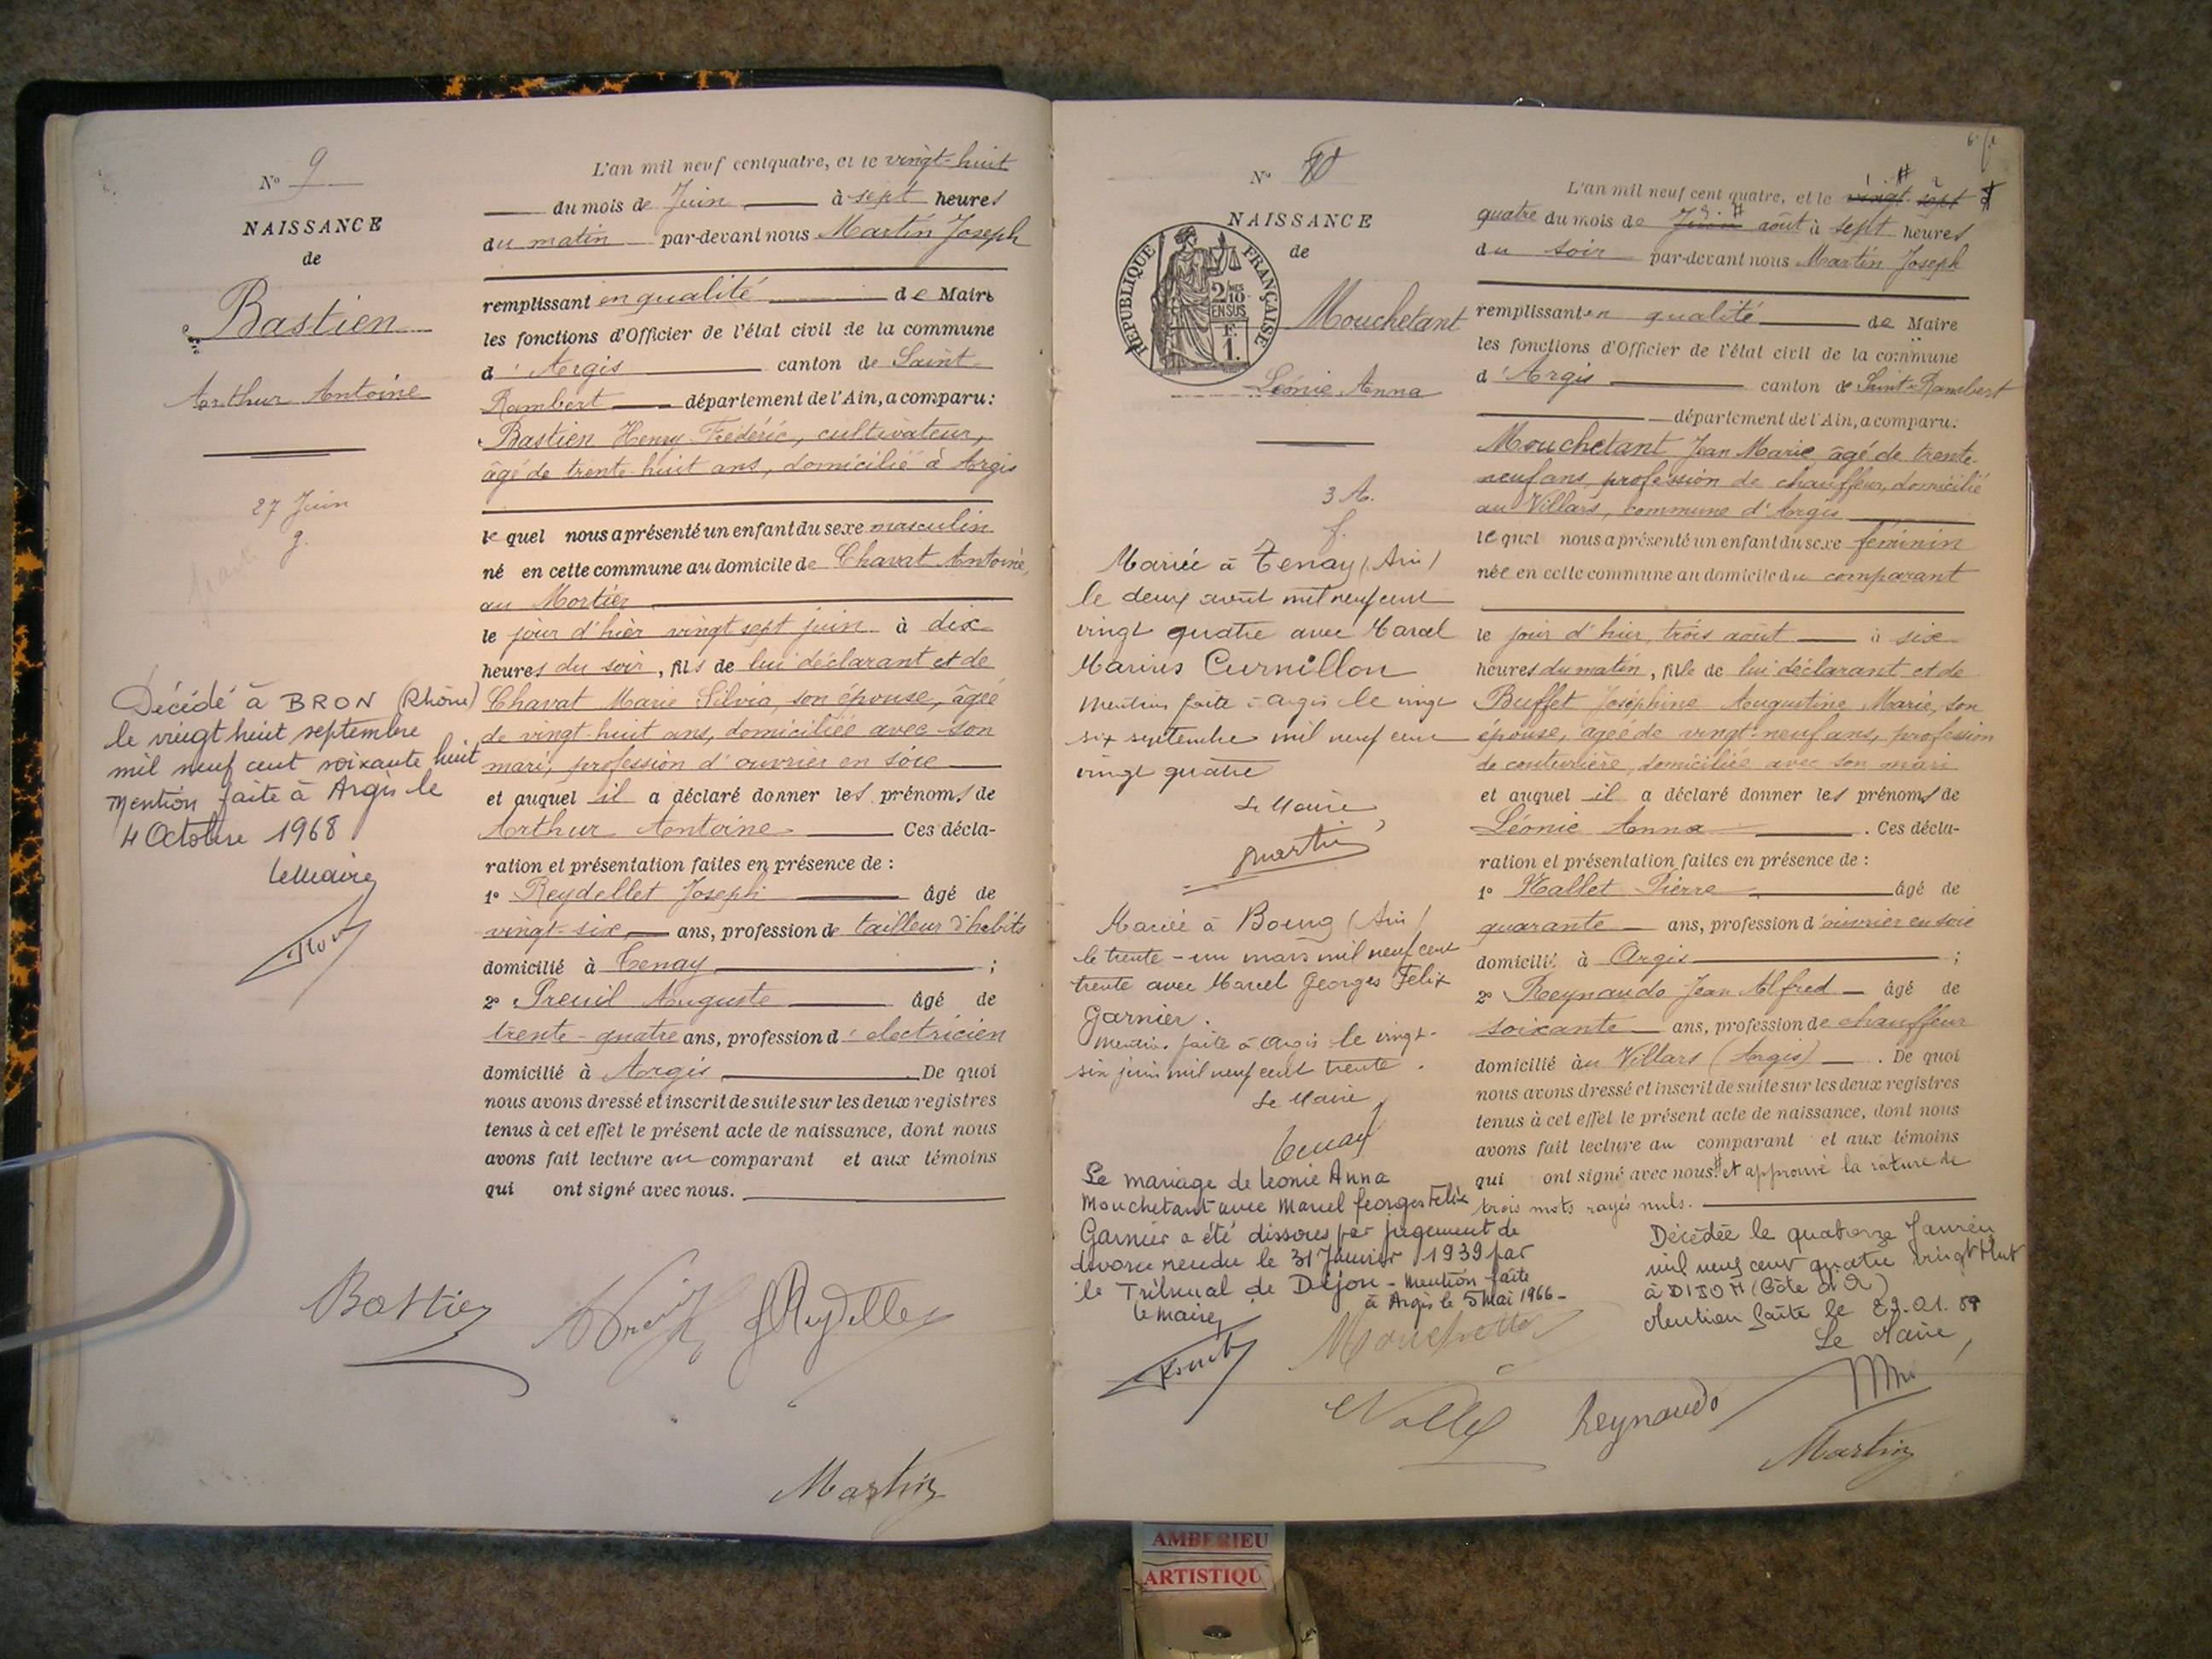 N° 9
NAISSANCE
de
Bastien
Arthur Antoine
27 Juin
g.
Décédé à BRON (Rhône)
le vingt huit septembre
mil neuf cent soixante huit
Mention faite à Argis le
4 Octobre 1968
Le Maire
L'an mil neuf cent quatre, et le vingt-huit
du mois de Juin à sept heures
du matin par-devant nous Martin Joseph
remplissant en qualité de Maire
les fonctions d'Officier de l'état civil de la commune
d'Argis canton de Saint-
Rambert département de l'Ain, a comparu:
Bastien Henry Frédéric, cultivateur,
âgé de trente-huit ans, domicilié à Argis
le quel nous a présenté un enfant du sexe masculin
né en cette commune au domicile de Chavat Antoine,
au Mortier
le jour d'hier vingt sept juin à dix
heures du soir, fils de lui déclarant et de
Chavat Marie Silvia, son épouse, âgée
de vingt-huit ans, domiciliée avec son
mari, profession d'ouvrier en soie
et auquel il a déclaré donner les prénoms de
Arthur Antoine Ces décla-
ration et présentation faites en présence de :
1° Reydellet Joseph âgé de
vingt-six ans, profession de tailleur d'habits
domicilié à Tenay ;
2° Preuil Auguste âgé de
trente-quatre ans, profession d'électricien
domicilié à Argis . De quoi
nous avons dressé et inscrit de suite sur les deux registres
tenus à cet effet le présent acte de naissance, dont nous
avons fait lecture au comparant et aux témoins
qui ont signé avec nous.
Bastien Preuil J Reydellet
Martin
N° 10
NAISSANCE
de
REPUBLIQUE FRANÇAISE
2/10 EN SUS
F. 1.
Mouchetant
Léonie Anna
3 A.
f.
Mariée à Tenay (Ain)
le deux août mil neuf cent
vingt quatre avec Marcel
Marius Curnillon
Mention faite à Argis le vingt
six septembre mil neuf cent
vingt quatre
Le Maire,
Martin
Mariée à Bourg (Ain)
le trente-un mars mil neuf cent
trente avec Marcel Georges Felix
Garnier.
Mention faite à Argis le vingt-
six juin mil neuf cent trente.
Le Maire,
Le mariage de Léonie Anna
Mouchetant avec Marcel Georges Felix
Garnier a été dissous par jugement de
divorce rendu le 31 Janvier 1939 par
le Tribunal de Dijon - Mention faite
à Argis le 5 Mai 1966-
Le Maire,
L'an mil neuf cent quatre, et le vingt-sept #
quatre du mois de Juin août à sept heures
du soir par-devant nous Martin Joseph
remplissant en qualité de Maire
les fonctions d'Officier de l'état civil de la commune
d'Argis canton de Saint-Rambert
département de l'Ain, a comparu:
Mouchetant Jean Marie, âgé de trente-
neuf ans, profession de chauffeur, domicilié
au Villars, commune d'Argis
le quel nous a présenté un enfant du sexe féminin
née en cette commune au domicile du comparant
le jour d'hier, trois août à six
heures du matin, fille de lui déclarant et de
Buffet Joséphine Augustine Marie, son
épouse, agée de vingt-neuf ans, profession
de couturière, domiciliée avec son mari
et auquel il a déclaré donner les prénoms de
Léonie Anna . Ces décla-
ration et présentation faites en présence de :
1° Nallet Pierre âgé de
quarante ans, profession d'ouvrier en soie
domicilié à Argis ;
2° Reynaudo Jean Alfred âgé de
soixante ans, profession de chauffeur
domicilié au Villars (Argis) . De quoi
nous avons dressé et inscrit de suite sur les deux registres
tenus à cet effet le présent acte de naissance, dont nous
avons fait lecture au comparant et aux témoins
qui ont signé avec nous # et approuvé la rature de
trois mots rayés nuls.
Décédée le quatorze Janvier
mil neuf cent quatre vingt huit
à DIJON (Côte d'Or)
Mention faite le
Le Maire,
Reynaudo
Martin
AMBERIEU
ARTISTIQU